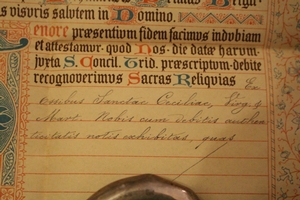 us visuris salutem in Domino.
Tenore præsentium fidem facimus indubiam
et attestamur quod Nos die datæ harum
juxta S. Concil. Trid. præscriptum debite
recognoverimus Sacras Reliquias Ex
ossibus Sanctae Ceciliae, Virg. &
Mart. Nobis cum debitis authen
ticitatis notis exhibitas, quas